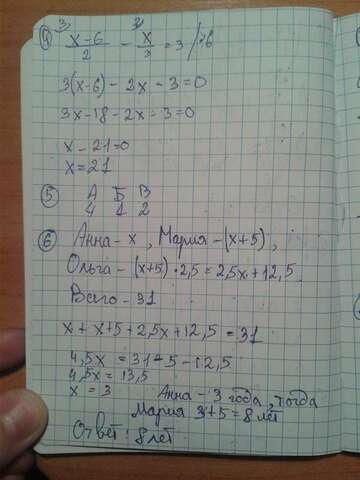 4) (x-6)/2 - x/3 = 3 / ·6
3(x-6) - 2x - 3 = 0
3x - 18 - 2x - 3 = 0
x - 21 = 0
x = 21
5) А Б В
4 1 2
6) Анна - x, Мария - (x+5),
Ольга - (x+5)·2,5 = 2,5x + 12,5
Всего - 31
x + x + 5 + 2,5x + 12,5 = 31
4,5x = 31 - 5 - 12,5
4,5x = 13,5
x = 3 Анна - 3 года, тогда
Мария 3+5 = 8 лет
Ответ: 8 лет